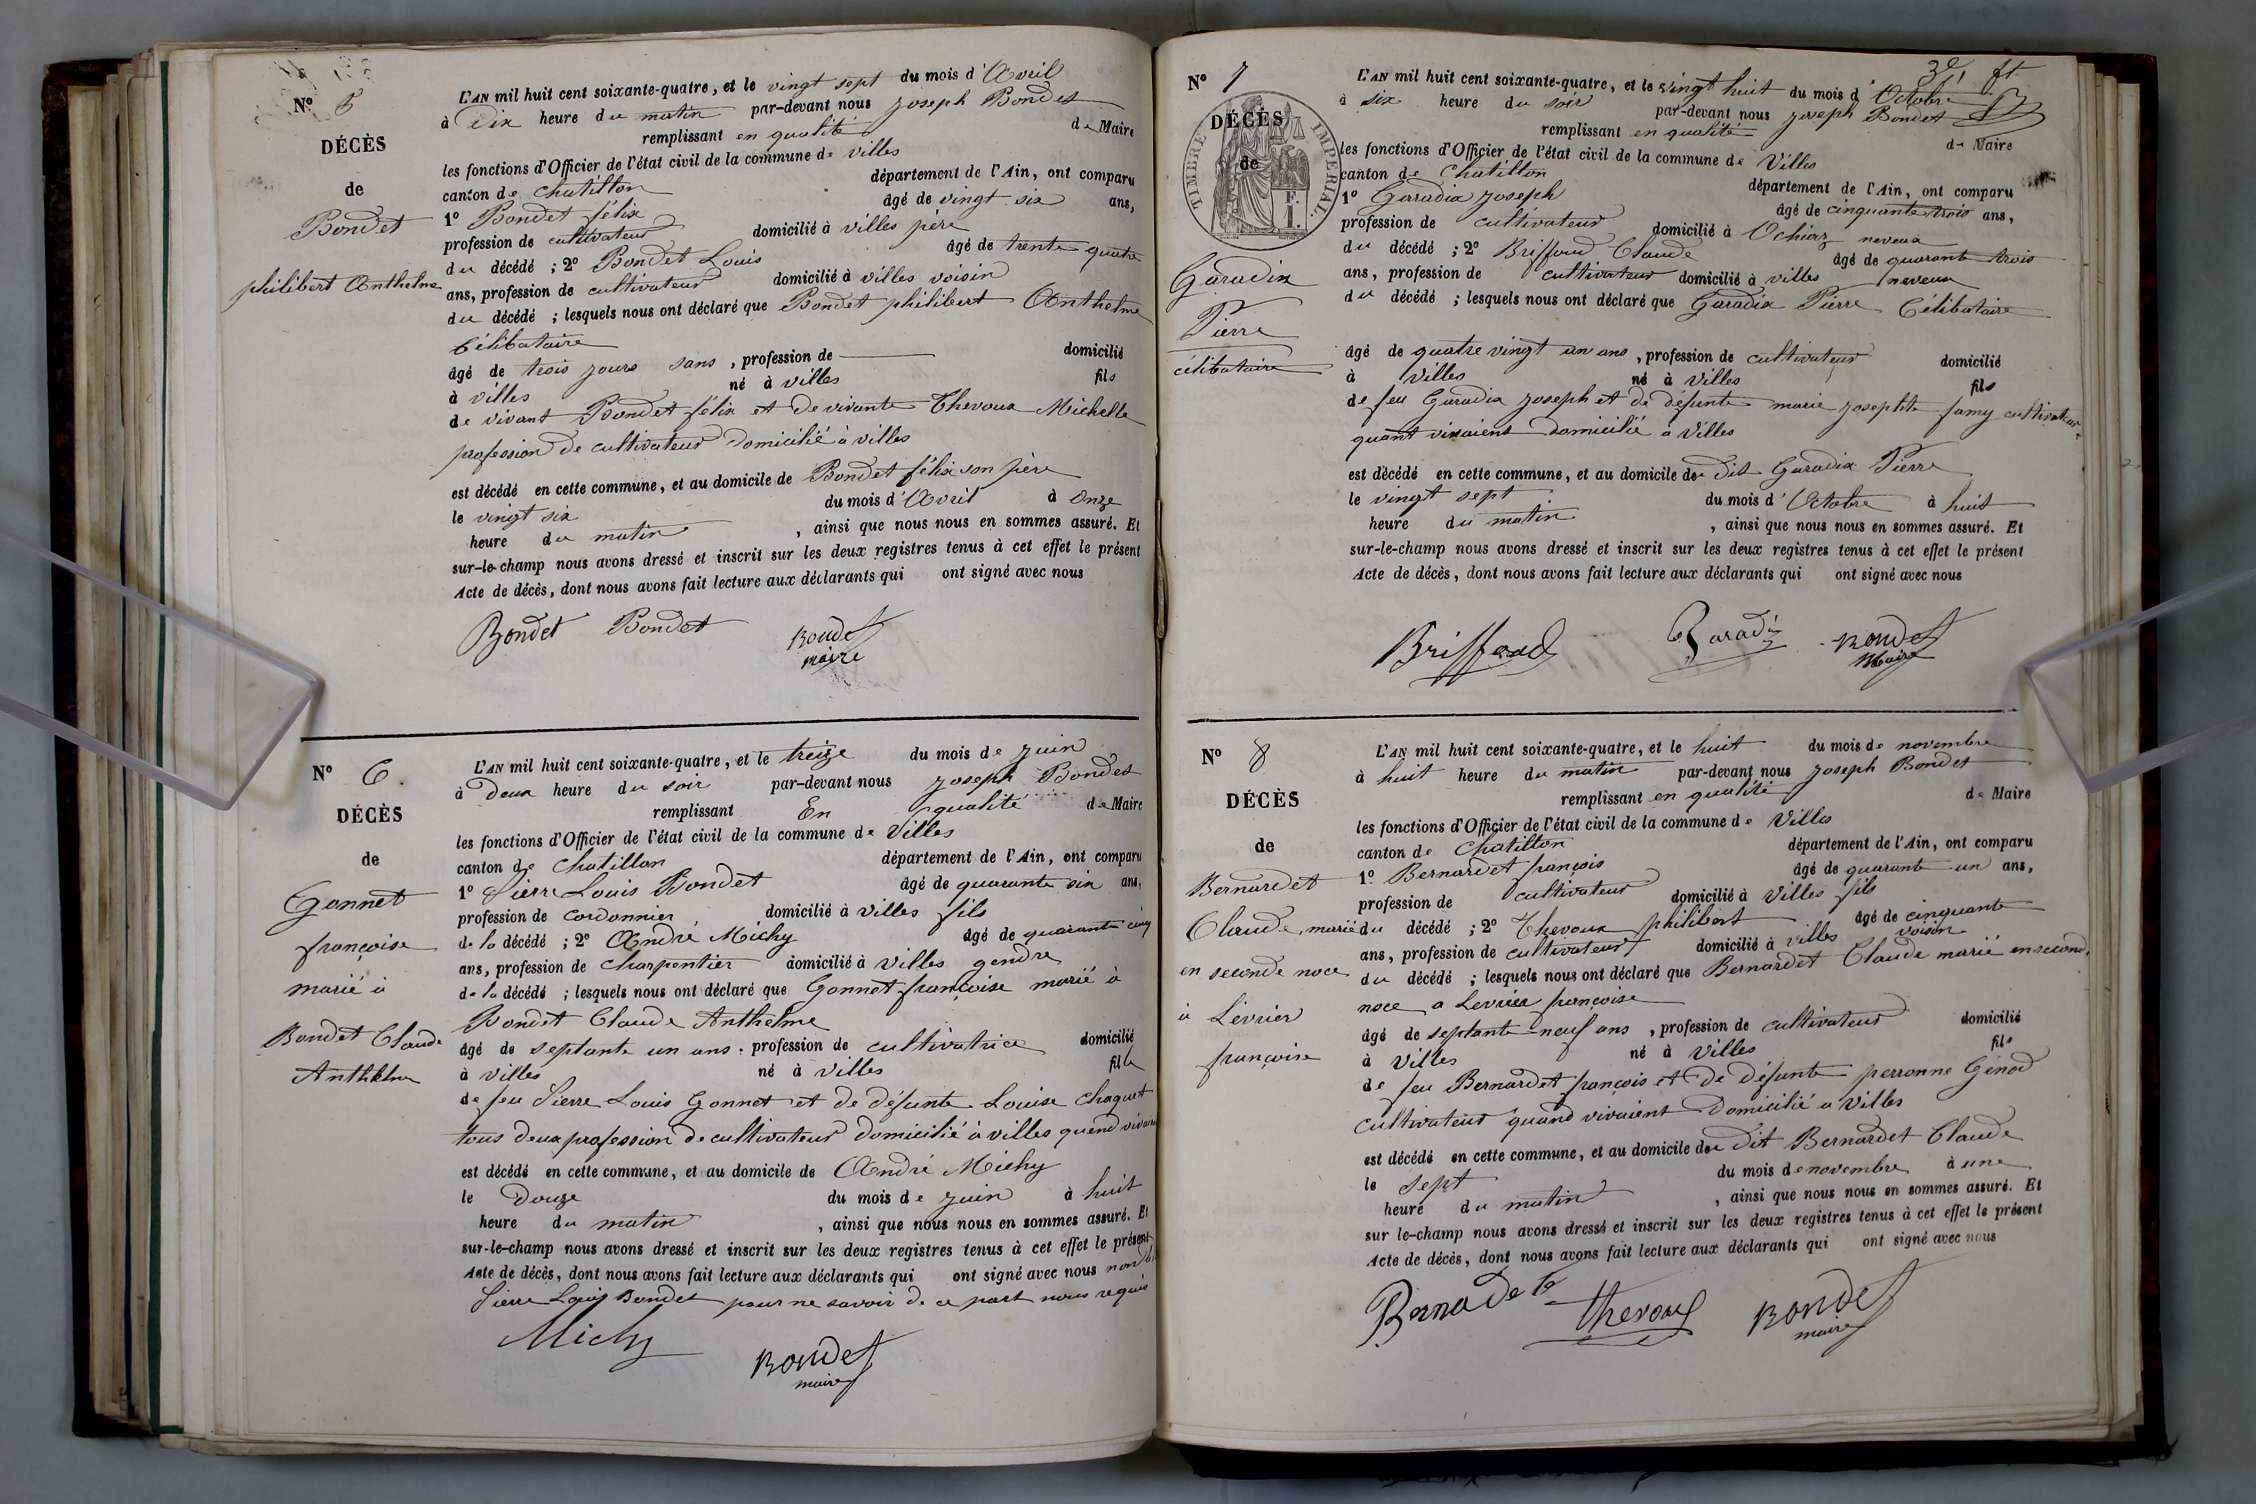 Nº 5
DÉCÈS
de
Bondet
philibert Anthelme
L'AN mil huit cent soixante-quatre, et le vingt sept du mois d'Avril
à Dix heure du matin par-devant nous Joseph Bondet
remplissant en qualité de Maire
les fonctions d'Officier de l'état civil de la commune de villes
canton de Chatillon département de l'Ain, ont comparu
1º Bondet félix âgé de vingt six ans,
profession de cultivateur domicilié à villes père
du décédé ; 2º Bondet Louis âgé de trente quatre
ans, profession de cultivateur domicilié à villes voisin
du décédé ; lesquels nous ont déclaré que Bondet philibert Anthelme
Célibataire
âgé de trois jours sans, profession de domicilié
à villes né à villes fils
de vivant Bondet félix et de vivante Thevoux Michelle
profession de cultivateur domicilié à villes
est décédé en cette commune, et au domicile de Bondet félix son père
le vingt six du mois d'Avril à onze
heure du matin, ainsi que nous nous en sommes assuré. Et
sur-le-champ nous avons dressé et inscrit sur les deux registres tenus à cet effet le présent
Acte de décès, dont nous avons fait lecture aux déclarants qui ont signé avec nous
Bondet Bondet Bondet
maire
Nº 6.
DÉCÈS
de
Gonnet
françoise
marié à
Bondet Claude
Anthelme
L'AN mil huit cent soixante-quatre, et le treize du mois de juin
à Deux heure du soir par-devant nous Joseph Bondet
remplissant En qualité de Maire
les fonctions d'Officier de l'état civil de la commune de Villes
canton de Chatillon département de l'Ain, ont comparu
1º Pierre Louis Bondet âgé de quarante six ans,
profession de cordonnier, domicilié à villes fils
de la décédé ; 2º André Michy âgé de quarante cinq
ans, profession de charpentier domicilié à villes gendre
de la décédé ; lesquels nous ont déclaré que Gonnet françoise marié à
Bondet Claude Anthelme
âgé de septante un ans, profession de cultivatrice domicilié
à villes né à villes fille
de feu Pierre Louis Gonnet et de défunte Louise Chaquet
tous deux profession de cultivateur domicilié à villes quend vivaient
est décédé en cette commune, et au domicile de André Michy
le Douze du mois de juin à huit
heure du matin, ainsi que nous nous en sommes assuré. Et
sur-le-champ nous avons dressé et inscrit sur les deux registres tenus à cet effet le présent
Acte de décès, dont nous avons fait lecture aux déclarants qui ont signé avec nous non
Pierre Louis Bondet pour ne savoir de ce part nous requis
Michy
Bondet
maire
3e ft
Nº 7
DÉCÈS
de
TIMBRE IMPÉRIAL
F. 1.
Garadix
Pierre
célibataire
L'AN mil huit cent soixante-quatre, et le vingt huit du mois d'Octobre
à six heure du soir par-devant nous Joseph Bondet
remplissant en qualité de Maire
les fonctions d'Officier de l'état civil de la commune de Villes
canton de Chatillon département de l'Ain, ont comparu
1º Garadix Joseph âgé de cinquante trois ans,
profession de cultivateur domicilié à Ochiaz neveux
du décédé ; 2º Briffoud Claude âgé de quarante trois
ans, profession de cultivateur domicilié à villes neveux
du décédé ; lesquels nous ont déclaré que Garadix Pierre Célibataire
âgé de quatre vingt un ans, profession de cultivateur domicilié
à Villes né à Villes fils
de feu Garadix Joseph et de défunte marie josephte famy cultivateur
quant vivaient domicilié à Villes
est décédé en cette commune, et au domicile du dit Garadix Pierre
le vingt sept du mois d'Octobre à huit
heure du matin, ainsi que nous nous en sommes assuré. Et
sur-le-champ nous avons dressé et inscrit sur les deux registres tenus à cet effet le présent
Acte de décès, dont nous avons fait lecture aux déclarants qui ont signé avec nous
Briffoud Garadix Bondet
Maire
Nº 8
DÉCÈS
de
Bernardet
Claude, marié
en seconde noce
à Lévrier
françoise
L'AN mil huit cent soixante-quatre, et le huit du mois de novembre
à huit heure du matin par-devant nous Joseph Bondet
remplissant en qualité de Maire
les fonctions d'Officier de l'état civil de la commune de Villes
canton de Chatillon département de l'Ain, ont comparu
1º Bernardet françois âgé de quarante un ans,
profession de cultivateur domicilié à Villes fils
du décédé ; 2º Thevoux philibert âgé de cinquante
ans, profession de cultivateur domicilié à villes voisin
du décédé ; lesquels nous ont déclaré que Bernardet Claude marié en second
noce a Levrier françoise
âgé de septante neuf ans, profession de cultivateur domicilié
à Villes né à Villes fils
de feu Bernardet françois et de défunte perronne Génod
cultivateur quand vivaient domicilié a Villes
est décédé en cette commune, et au domicile du dit Bernardet Claude
le sept du mois de novembre à une
heure du matin, ainsi que nous nous en sommes assuré. Et
sur le-champ nous avons dressé et inscrit sur les deux registres tenus à cet effet le présent
Acte de décès, dont nous avons fait lecture aux déclarants qui ont signé avec nous
Bernadet Thevoux Bondet
maire